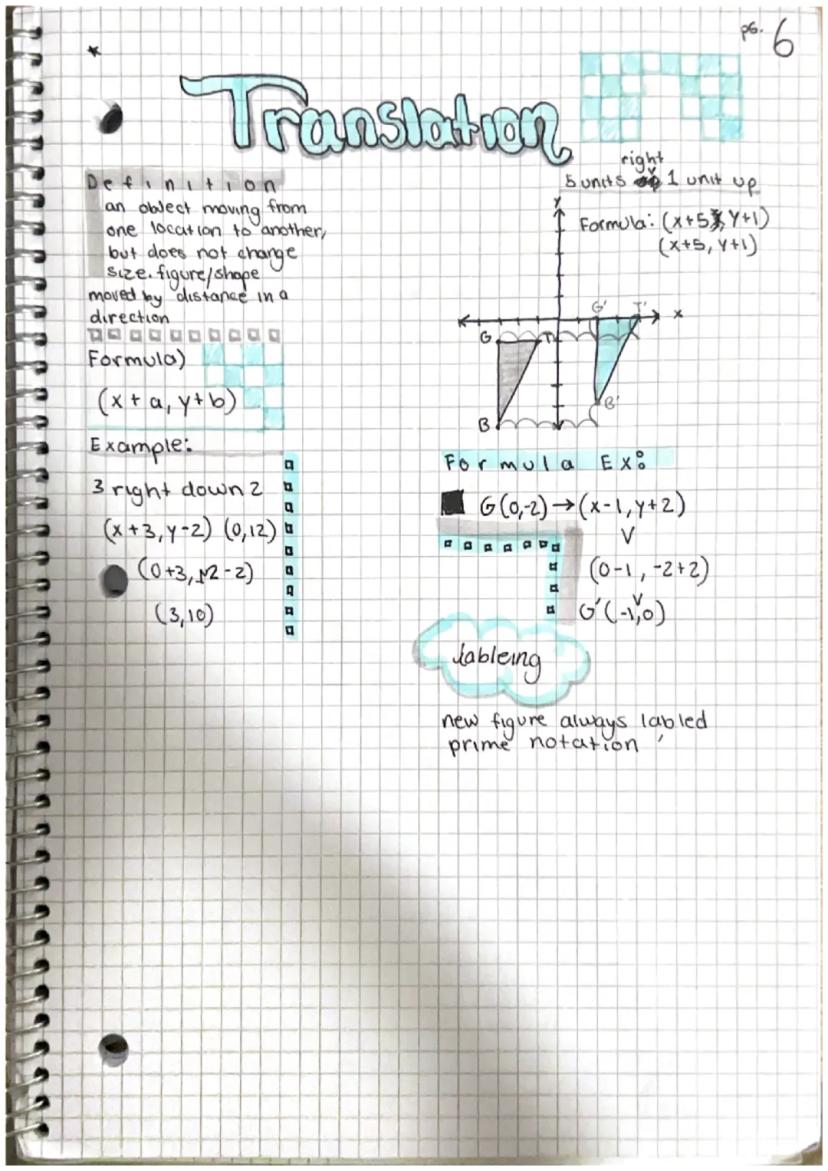 pg. 6
Translation
Definition
an object moving from
one location to another,
but does not change
size. figure/shape
moved by distance in a
direction
Formula)
(x + a, y+b)
Example:
3 right down 2
(x+3, y-2) (0,12)
(0+3, 12-2)
(3,10)
right
5 units 1 unit up
Formula: (x+5, y+1)
(x+5, y+1)
y
x
G' T'
G T
B'
B
Formula Ex:
G(0,-2) → (x-1, y+2)
(0-1, -2+2)
G'(-1,0)
lableing
new figure always labled
prime notation '